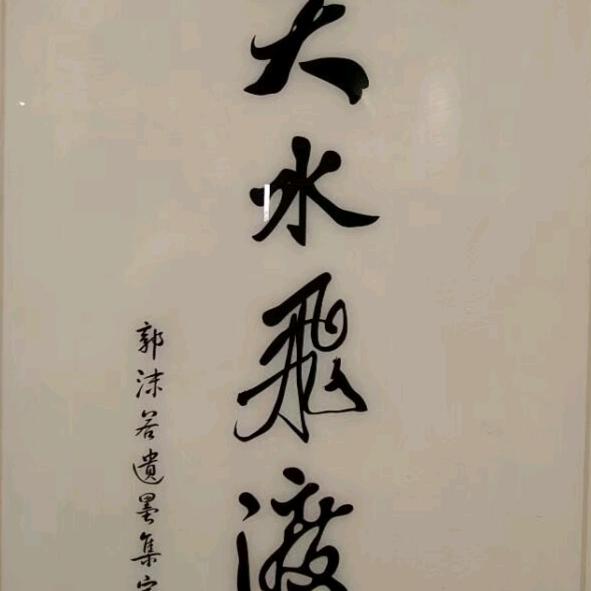 大水飛渡
郭沫若遺墨集字